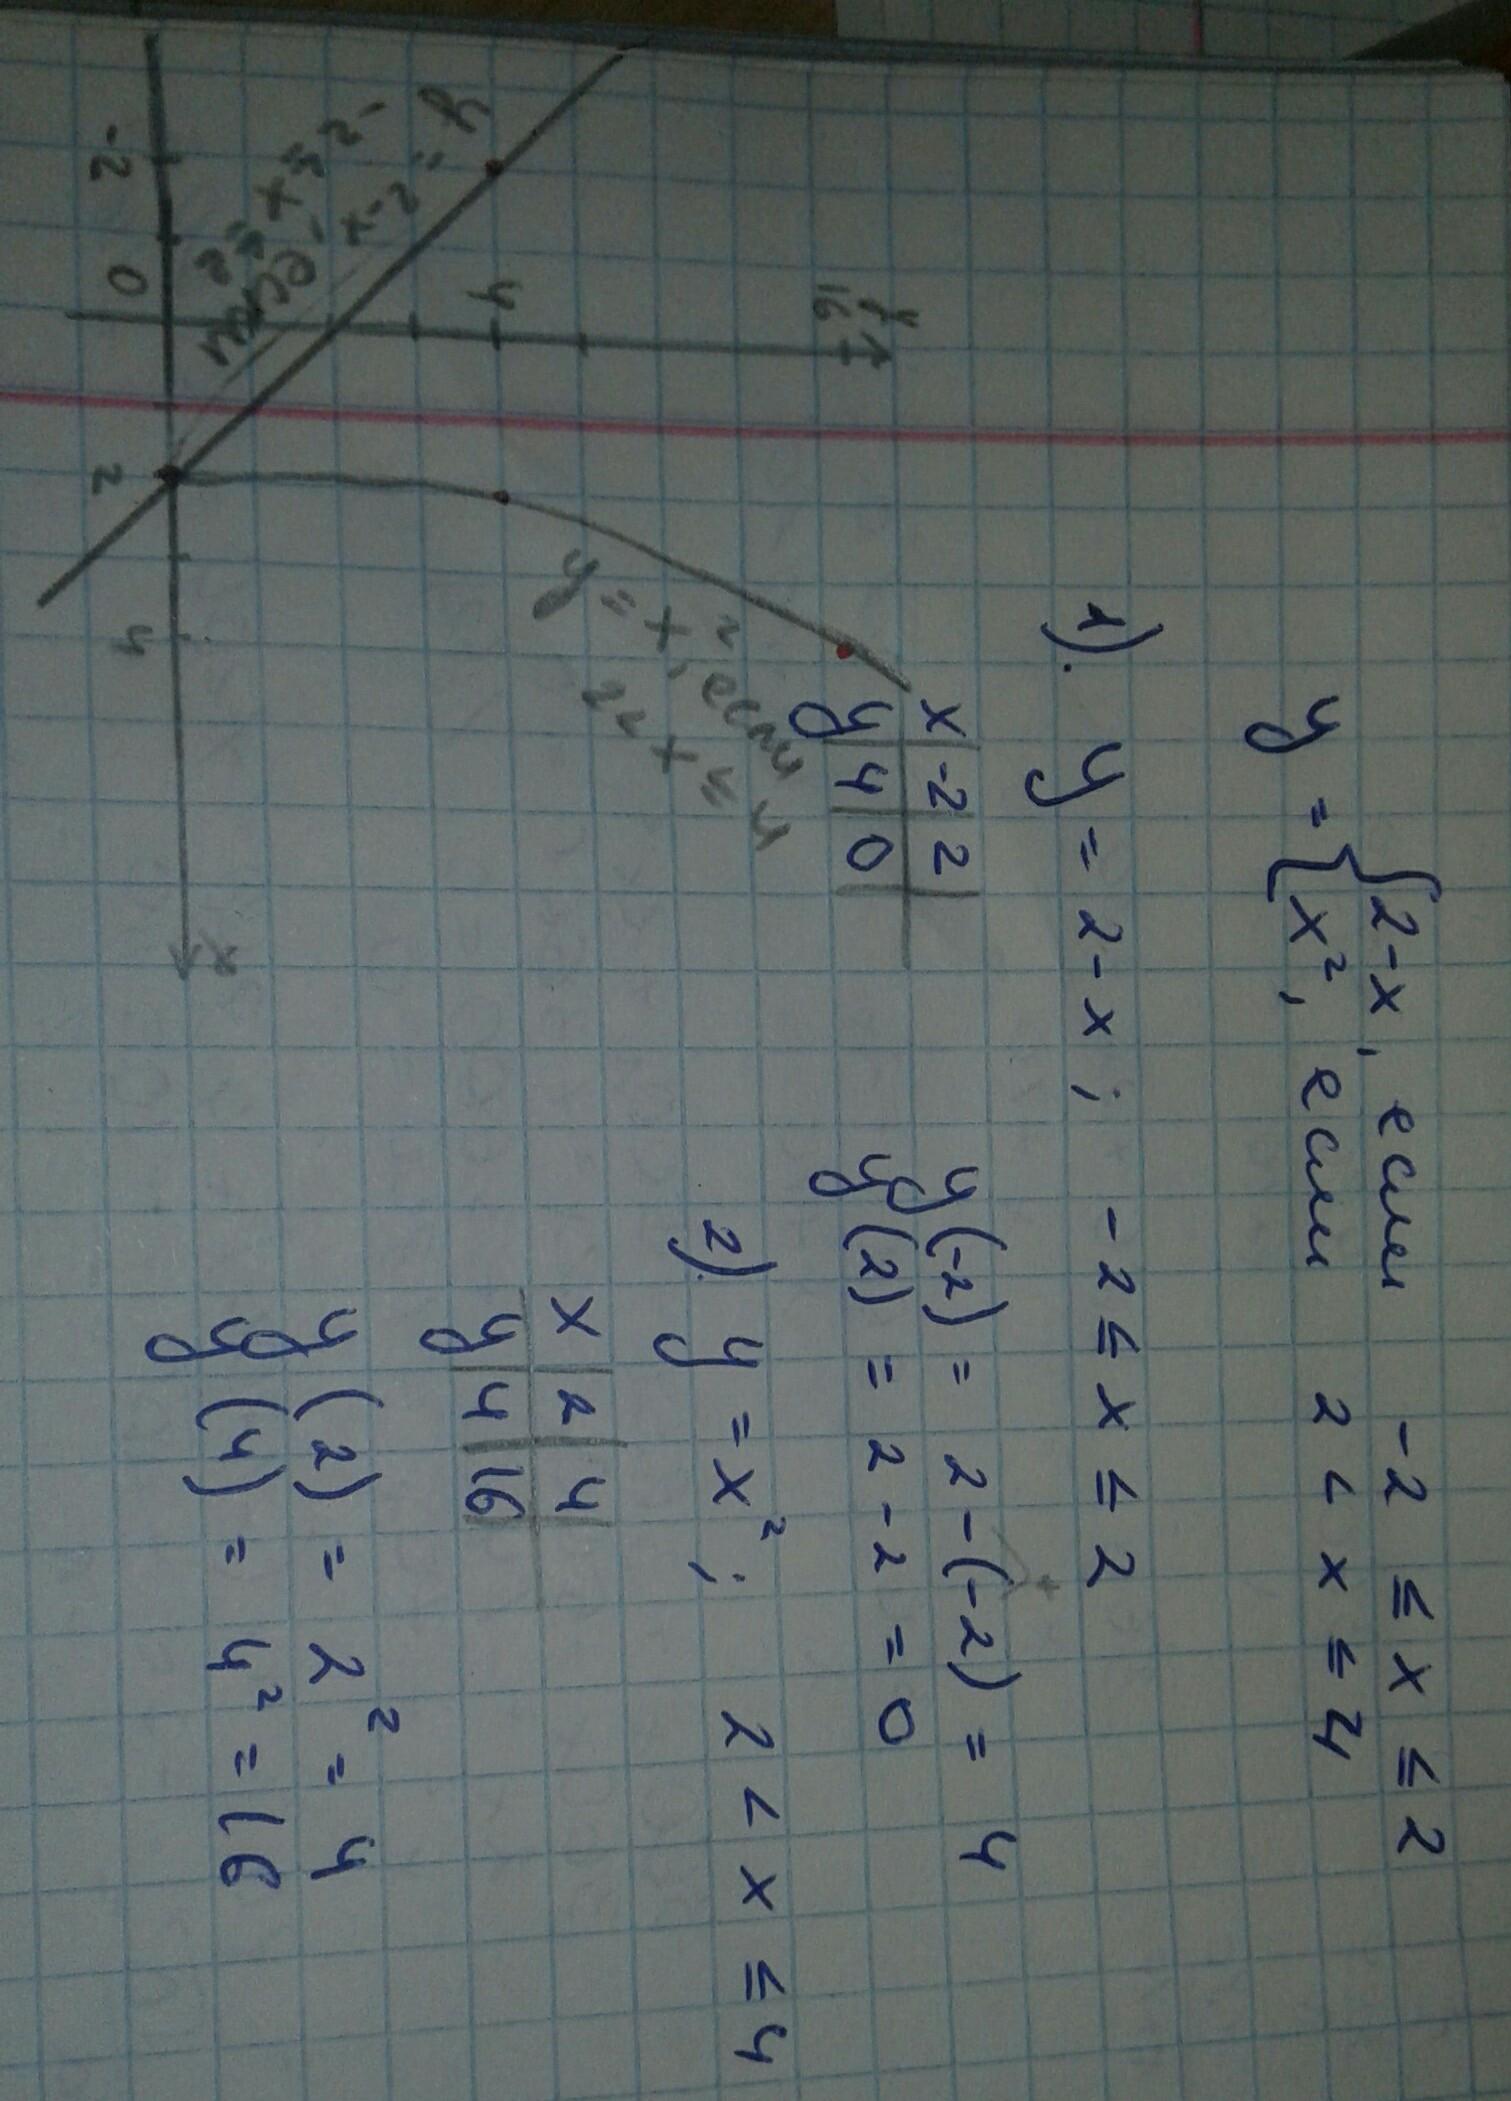 y = { 2-x, если -2 ≤ x ≤ 2
x², если 2 < x ≤ 4
1). y = 2-x ; -2 ≤ x ≤ 2
x | -2 | 2
y | 4 | 0
y(-2) = 2-(-2) = 4
y(2) = 2-2 = 0
2). y = x² ; 2 < x ≤ 4
x | 2 | 4
y | 4 | 16
y(2) = 2² = 4
y(4) = 4² = 16
y
16
4
y = 2-x, если
-2 ≤ x ≤ 2
y = x², если
2 < x ≤ 4
-2 0 2 4 x